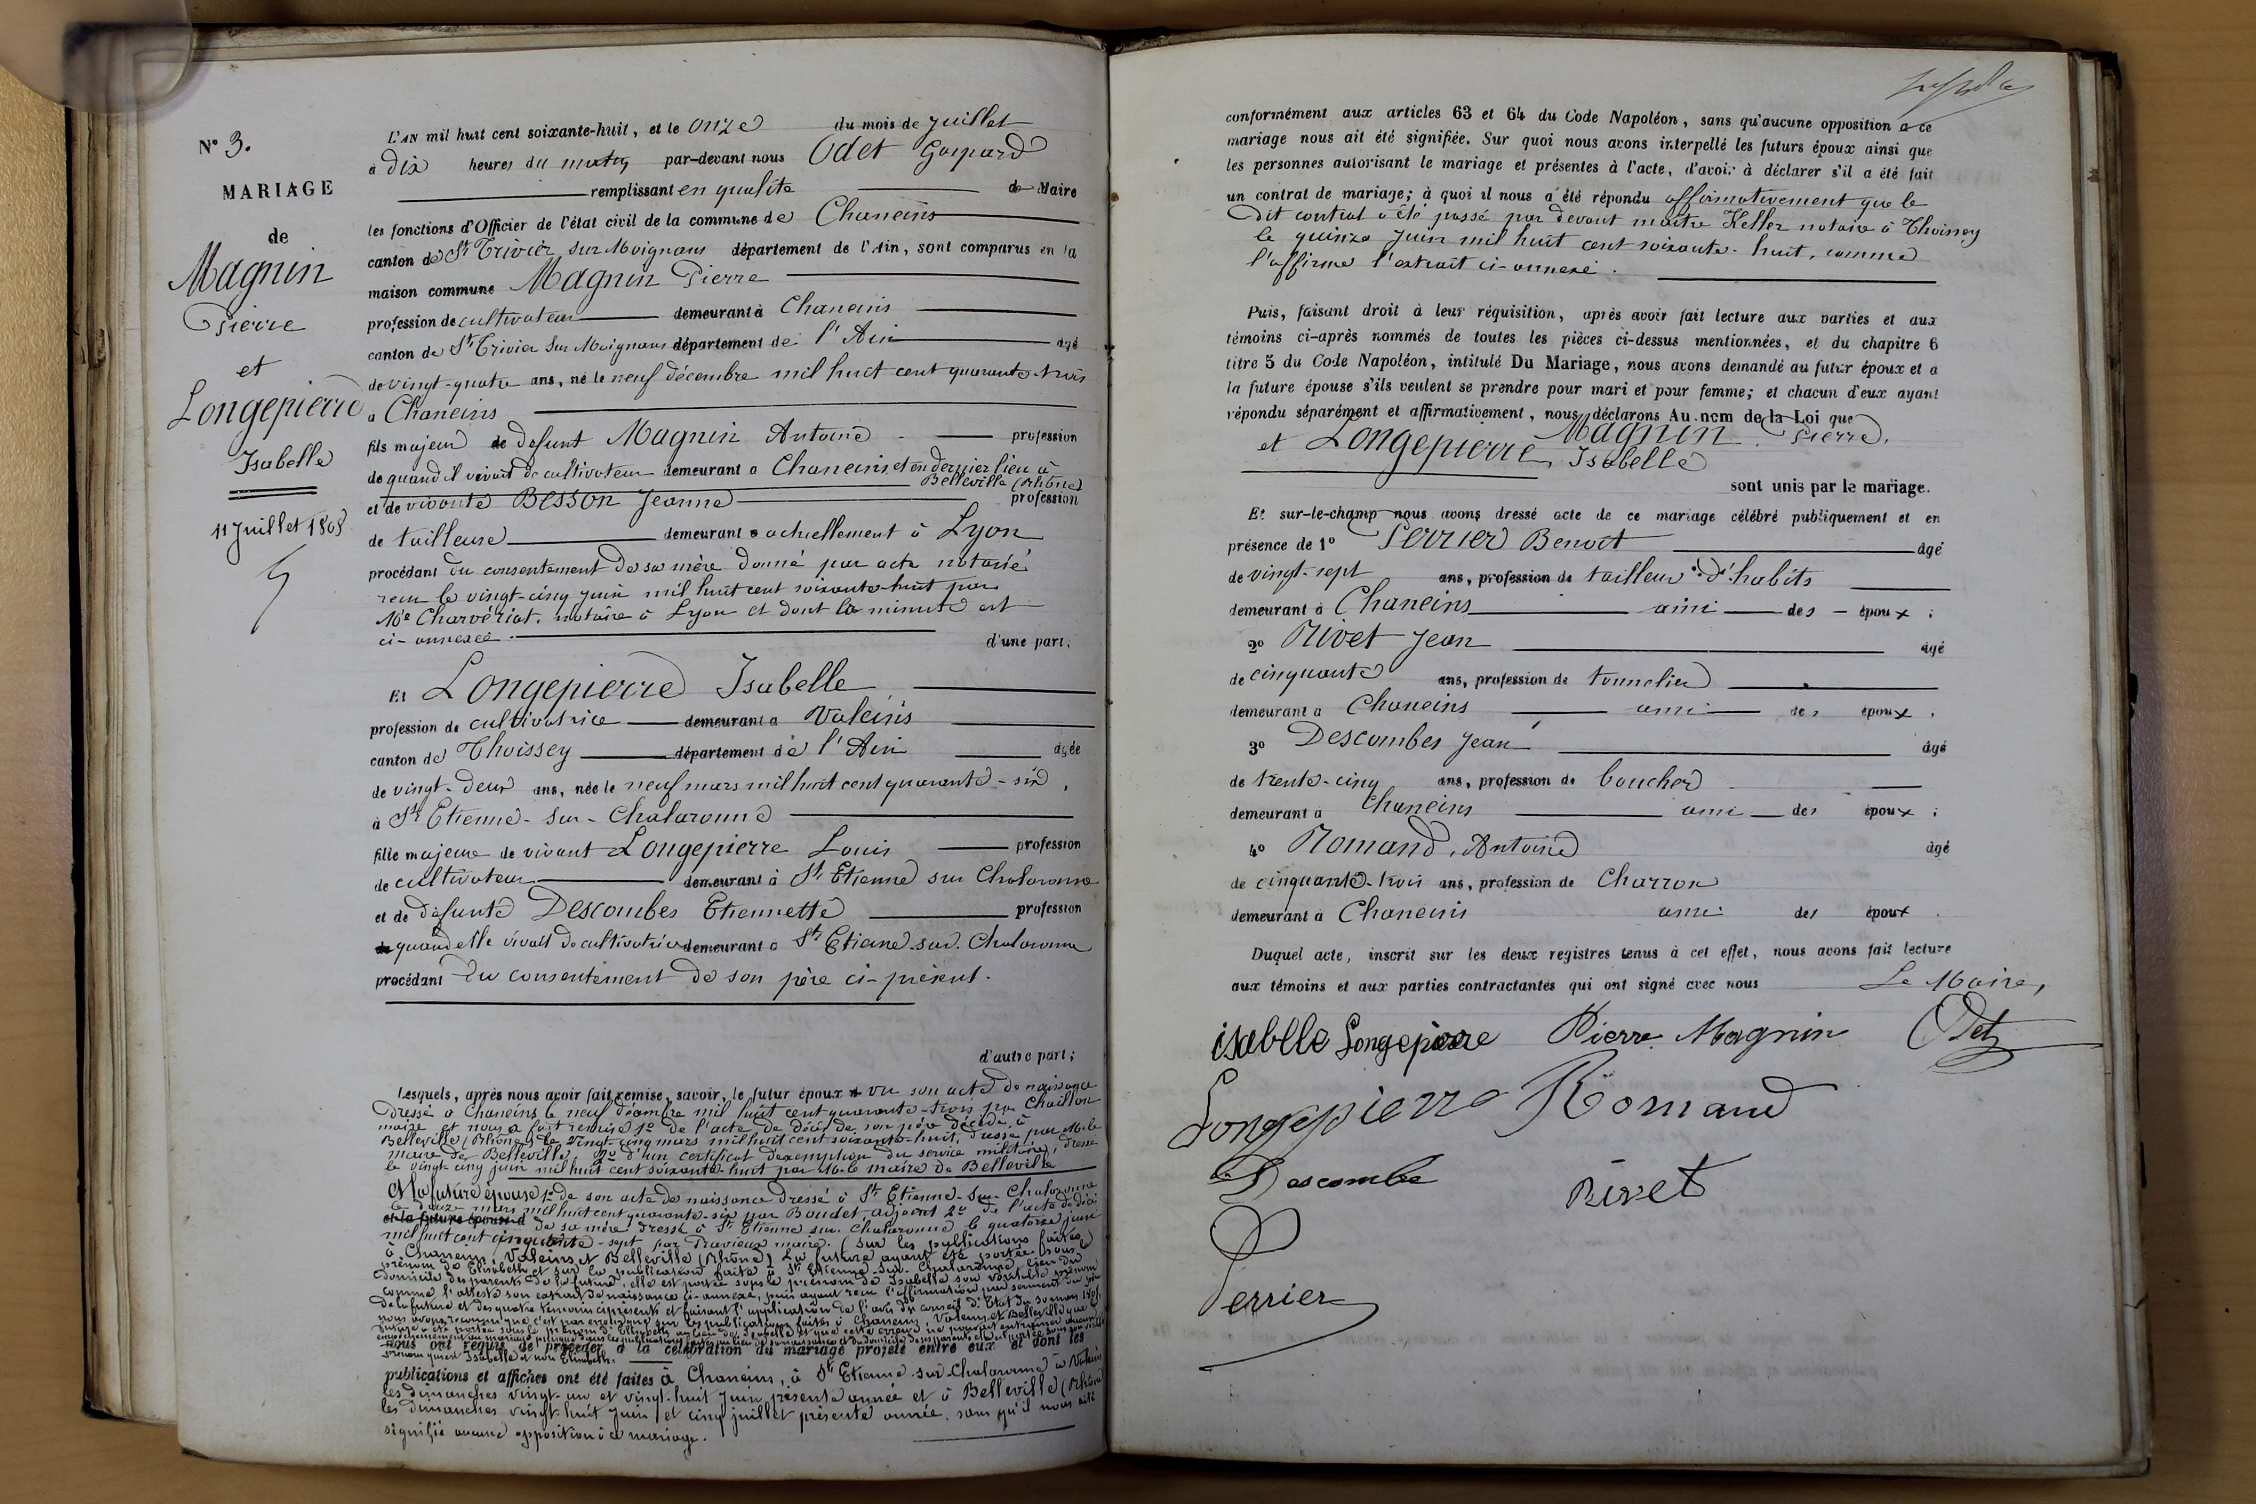 N° 3.
MARIAGE
de
Magnin
Pierre
et
Longepierre
Isabelle
11 Juillet 1868
L'AN mil huit cent soixante-huit, et le onze du mois de Juillet
à dix heures du matin par-devant nous Odet Gaspard
remplissant en qualité de Maire
les fonctions d'Officier de l'état civil de la commune de Chaneins
canton de St Trivier sur Moignans département de l'Ain, sont comparus en la
maison commune Magnin Pierre
profession de cultivateur demeurant à Chaneins
canton de St Trivier sur Moignans département de l'Ain âgé
de vingt-quatre ans, né le neuf décembre mil huit cent quarante-trois
à Chaneins
fils majeur de défunt Magnin Antoine profession
de quand il vivait de cultivateur demeurant à Chaneins et en dernier lieu à
Belleville (Rhône)
et de vivante Besson Jeanne profession
de tailleuse demeurant actuellement à Lyon
procédant du consentement de sa mère donné par acte notarié
reçu le vingt-cinq juin mil huit cent soixante-huit par
Me Charvériat, notaire à Lyon et dont la minute est
ci-annexée. d'une part.
Et Longepierre Isabelle
profession de cultivatrice demeurant à Valeins
canton de Thoissey département de l'Ain âgée
de vingt-deux ans, née le neuf mars mil huit cent quarante-six,
à St Etienne-sur-Chalaronne
fille majeure de vivant Longepierre Louis profession
de cultivateur demeurant à St Etienne sur Chalaronne
et de défunte Descombes Etiennette profession
de quand elle vivait de cultivatrice demeurant à St Etienne-sur-Chalaronne
procédant du consentement de son père ci-présent.
d'autre part;
Lesquels, après nous avoir fait remise, savoir, le futur époux vu son acte de naissance
dressé à Chaneins le neuf décembre mil huit cent quarante-trois par Chaillon
maire et nous a fait remise 1° de l'acte de décès de son père décédé à
Belleville (Rhône) le vingt-cinq mars mil huit cent soixante-huit, dressé par M. le
maire de Belleville, 2° d'un certificat d'exemption du service militaire, dressé
le vingt-cinq juin mil huit cent soixante-huit par M. le maire de Belleville
Et la future épouse 1° de son acte de naissance dressé à St Etienne-sur-Chalaronne
le douze mars mil huit cent quarante-six par Boudet, adjoint 2° de l'acte de décès
et la future épouse de sa mère dressé à St Etienne sur Chalaronne le quatorze juin
mil huit cent cinquante-sept par Travieux maire. (sur les publications faites
à Chaneins, Valeins et Belleville (Rhône) la future ayant été portée sous le
prénom de Elisabeth et sur la publication faite à St Etienne-sur-Chalaronne lieu du
domicile des parents de la future, elle est portée sous le prénom de Isabelle son véritable prénom
comme l'atteste son extrait de naissance ci-annexé, puis ayant reçu l'affirmation par serment du père
de la future et des quatre témoins ci présents et faisant l'application de l'avis du conseil d'Etat du 30 mars 1808,
nous avons reconnu que c'est par erreur que sur les publications faites à Chaneins, Valeins et Belleville que la
future a été portée sous le prénom de Elisabeth au lieu de Isabelle et que cette erreur ne pouvait entraîner aucun
nous ont requis de procéder à la célébration du mariage projeté entre eux et dont les
prénom qui est Isabelle et non Elisabeth.
publications et affiches ont été faites à Chaneins, à St Etienne-sur-Chalaronne à Valeins
les dimanches vingt-un et vingt-huit Juin présente année et à Belleville (Rhône)
les dimanches vingt-huit Juin et cinq juillet présente année, sans qu'il nous ait été
signifié aucune opposition à ce mariage.
conformément aux articles 63 et 64 du Code Napoléon, sans qu'aucune opposition à ce
mariage nous ait été signifiée. Sur quoi nous avons interpellé les futurs époux ainsi que
les personnes autorisant le mariage et présentes à l'acte, d'avoir à déclarer s'il a été fait
un contrat de mariage; à quoi il nous a été répondu affirmativement que le
dit contrat a été passé par devant maître Keller notaire à Thoissey
le quinze Juin mil huit cent soixante-huit, comme
l'affirme l'extrait ci-annexé.
Puis, faisant droit à leur réquisition, après avoir fait lecture aux parties et aux
témoins ci-après nommés de toutes les pièces ci-dessus mentionnées, et du chapitre 6
titre 5 du Code Napoléon, intitulé Du Mariage, nous avons demandé au futur époux et à
la future épouse s'ils veulent se prendre pour mari et pour femme; et chacun d'eux ayant
répondu séparément et affirmativement, nous déclarons Au nom de la Loi que
Magnin Pierre,
et Longepierre, Isabelle
sont unis par le mariage.
Et sur-le-champ nous avons dressé acte de ce mariage célébré publiquement et en
présence de 1° Perrier Benoit âgé
de vingt-sept ans, profession de tailleur d'habits
demeurant à Chaneins ami des époux;
2° Rivet Jean âgé
de cinquante ans, profession de tonnelier
demeurant à Chaneins ami des époux,
3° Descombes Jean âgé
de trente-cinq ans, profession de boucher
demeurant à Chaneins ami des époux;
4° Romand, Antoine âgé
de cinquante-trois ans, profession de Charron
demeurant à Chaneins ami des époux
Duquel acte, inscrit sur les deux registres tenus à cet effet, nous avons fait lecture
aux témoins et aux parties contractantes qui ont signé avec nous Le Maire,
isabelle Longepierre Pierre Magnin Odet
Longepierre Romand
Descombe
Rivet
Perrier